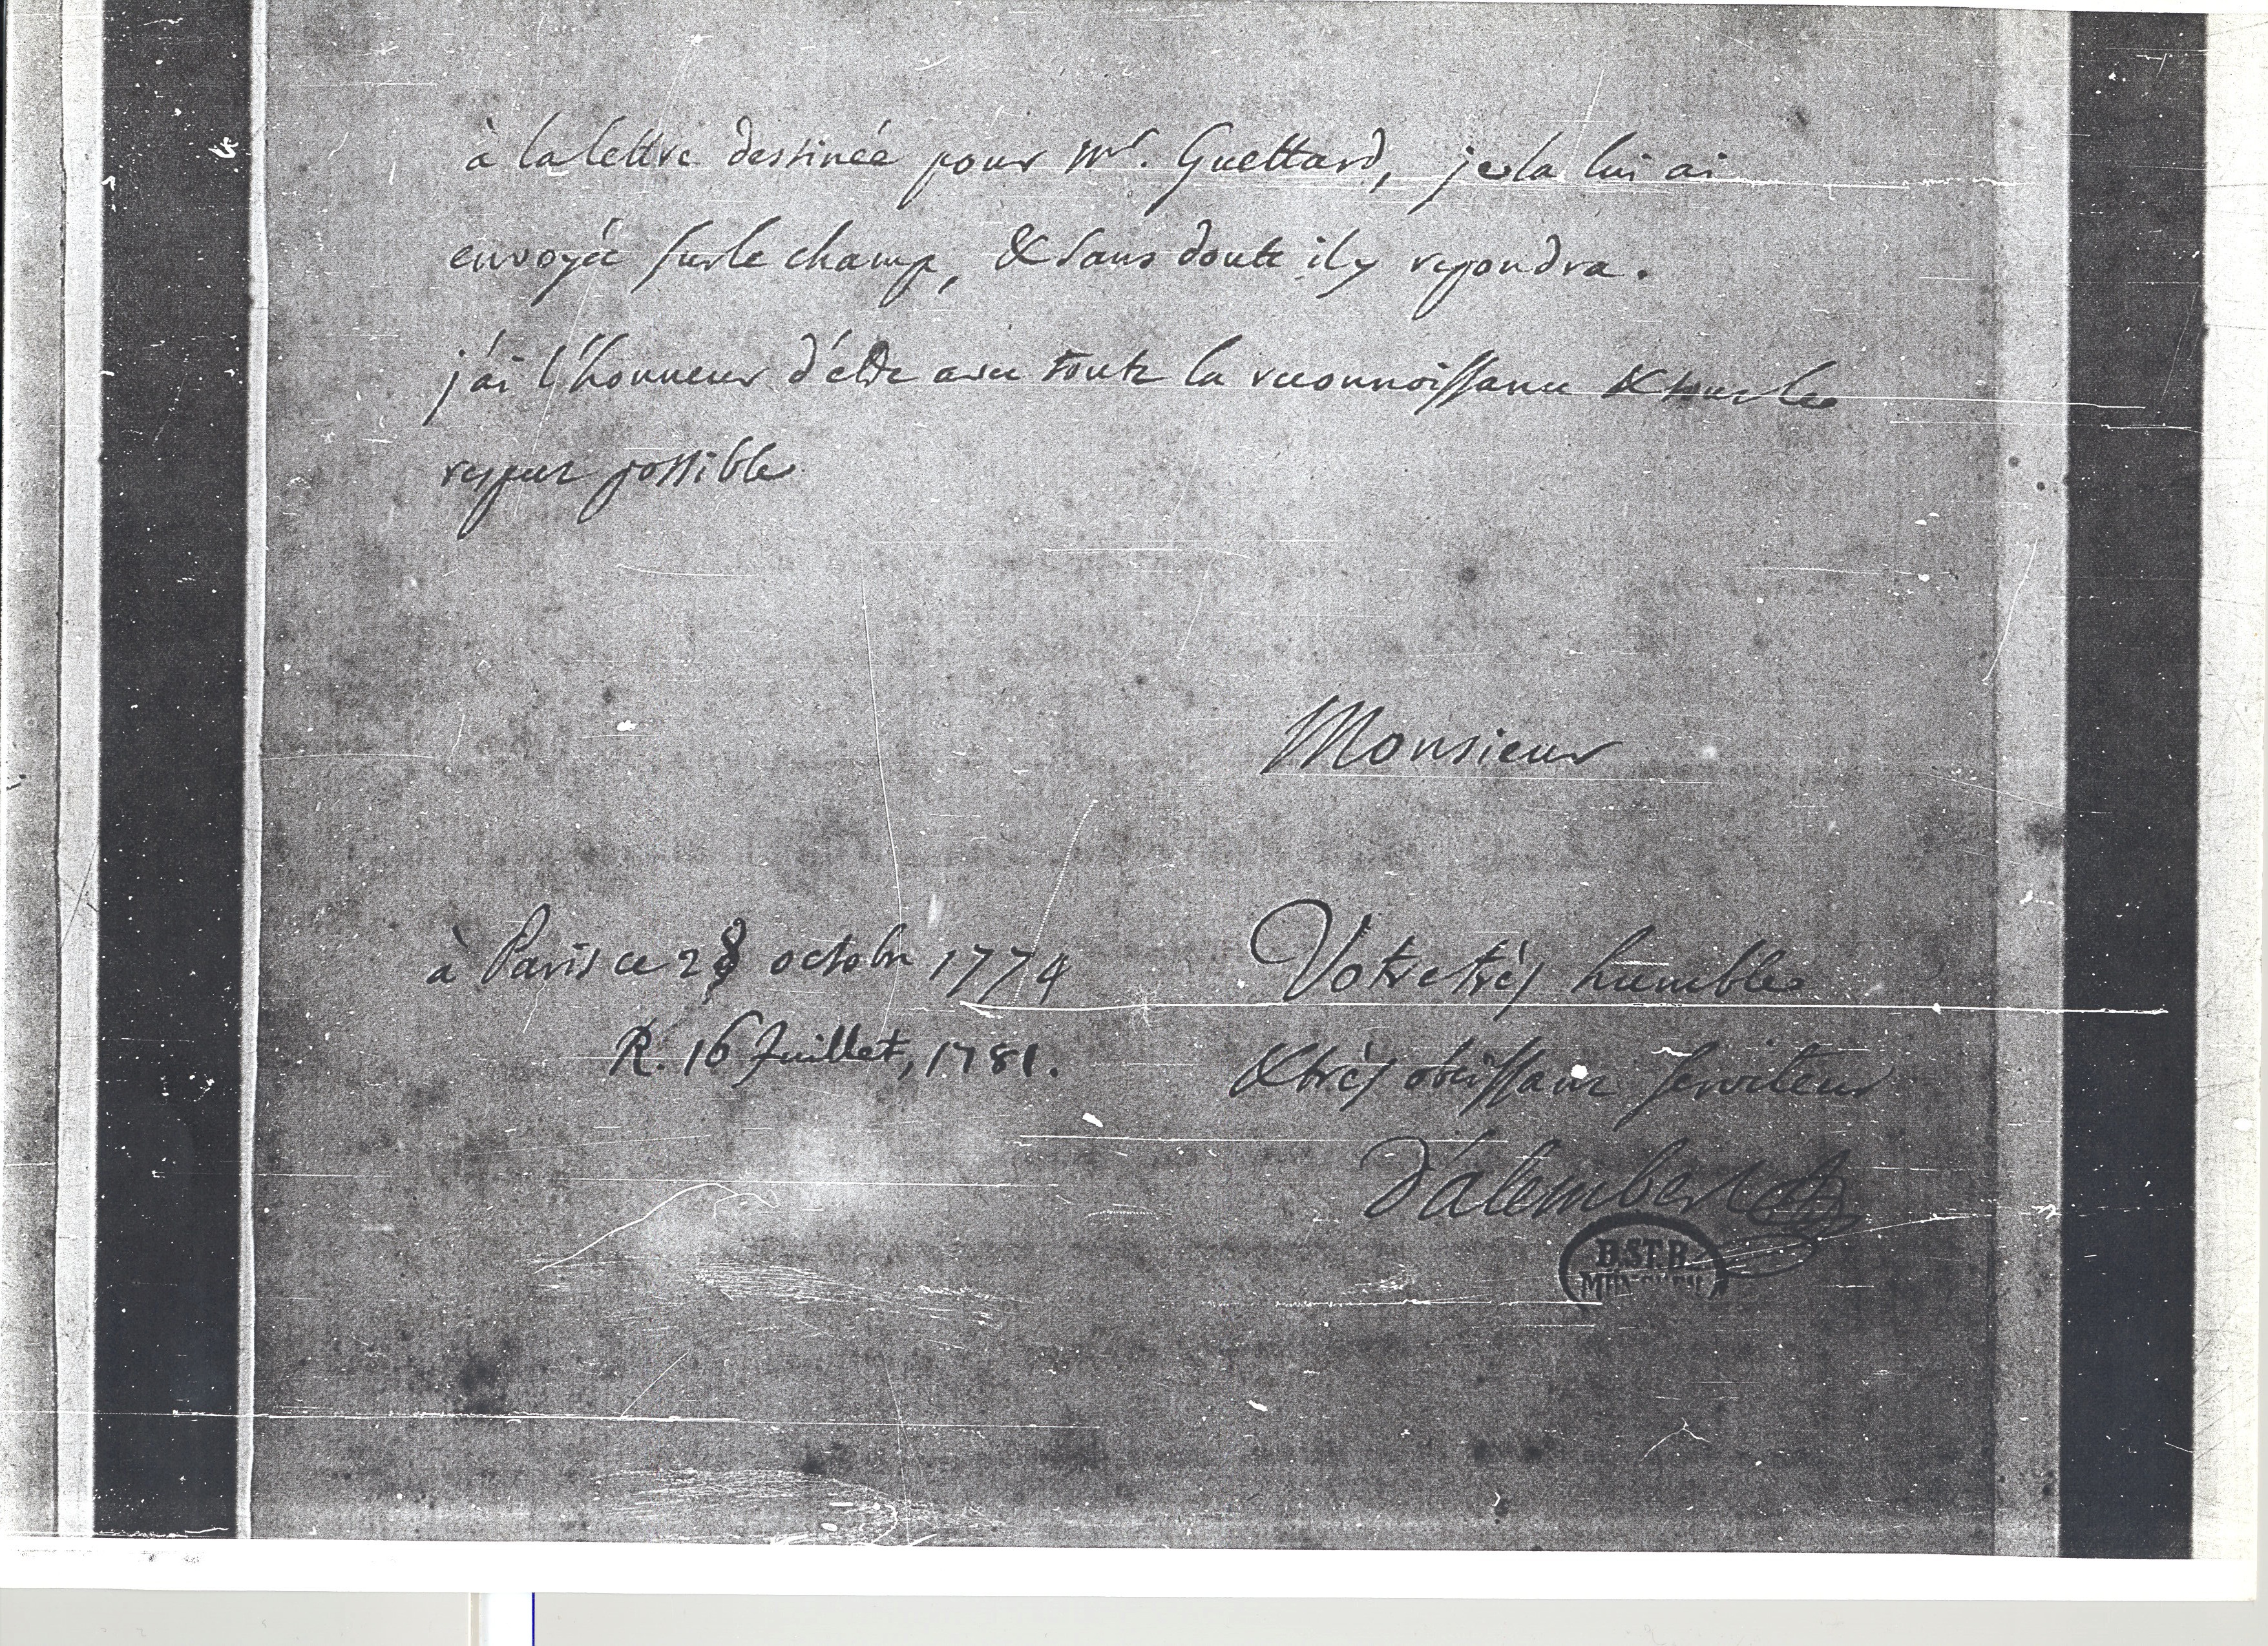 à la lettre destinée pour Mr. Guettard, je la lui ai
envoyée sur le champ, & sans doute il y repondra.
j'ai l'honneur d'être avec toute la reconnoissance & tout le
respect possible
Monsieur
à Paris ce 28 octobre 1774
Votre très humble
R. 16 Juillet, 1781.
& très obéissant serviteur
D'alembert
B.ST.B.
MÜNCHEN